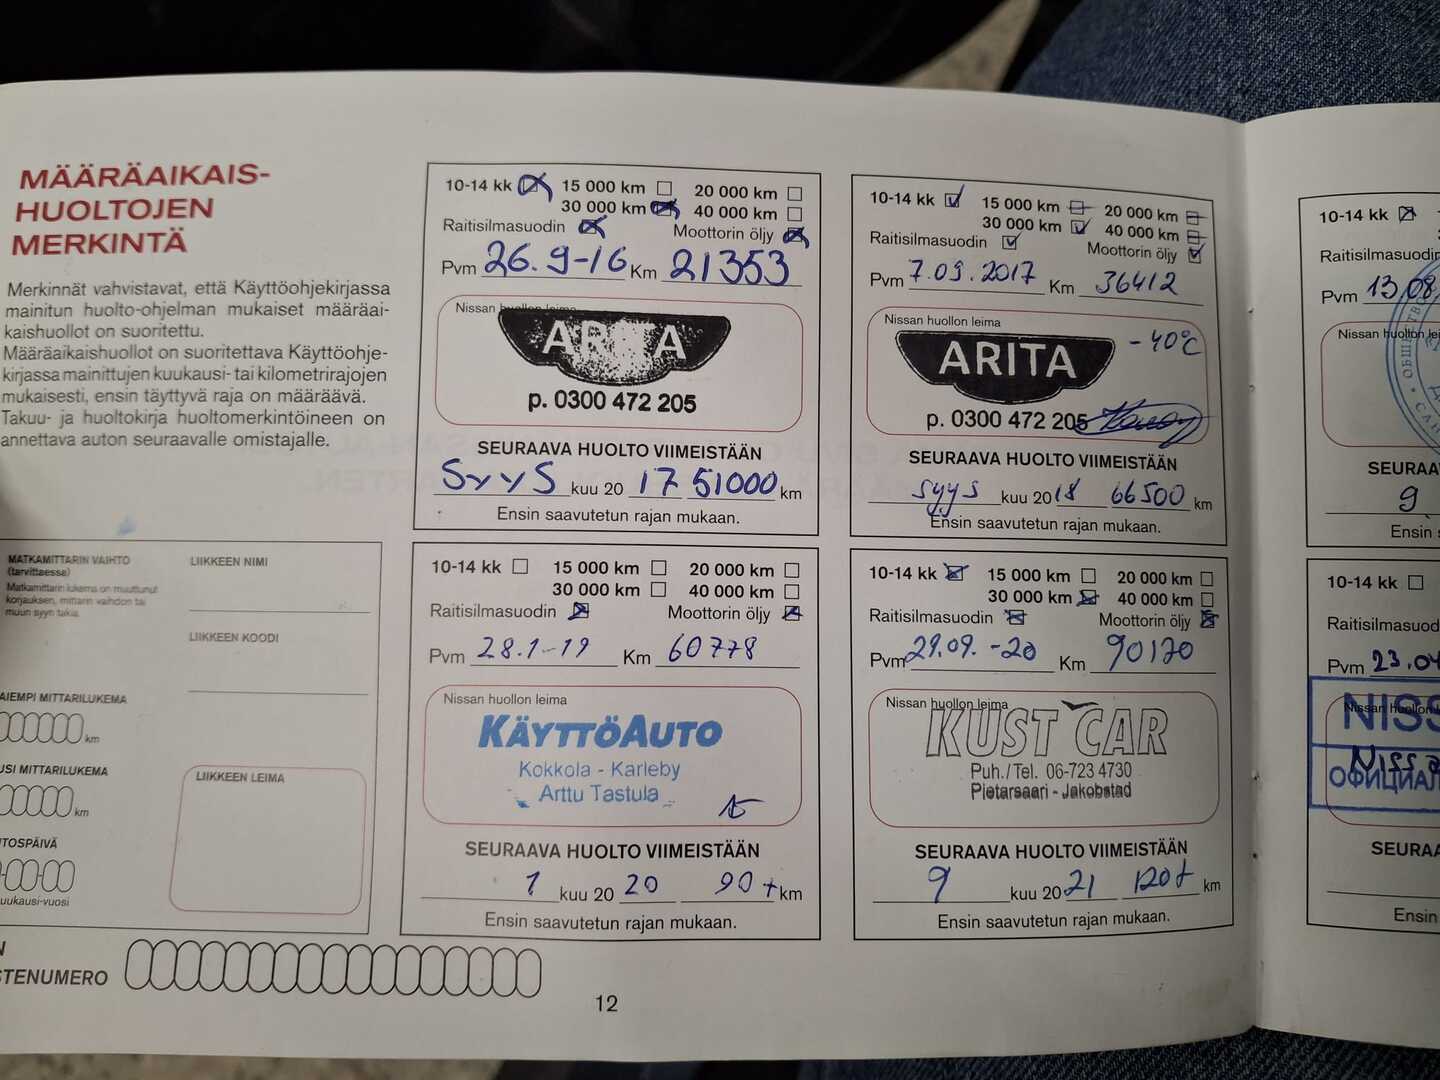 MÄÄRÄAIKAIS-
HUOLTOJEN
MERKINTÄ
Merkinnät vahvistavat, että Käyttöohjekirjassa
mainitun huolto-ohjelman mukaiset määräai-
kaishuollot on suoritettu.
Määräaikaishuollot on suoritettava Käyttöohje-
kirjassa mainittujen kuukausi- tai kilometrirajojen
mukaisesti, ensin täyttyvä raja on määräävä.
Takuu- ja huoltokirja huoltomerkintöineen on
annettava auton seuraavalle omistajalle.
MATKAMITTARIN VAIHTO
(tarvittaessa)
Matkamittarin lukema on muuttunut
korjauksen, mittarin vaihdon tai
muun syyn takia.
LIIKKEEN NIMI
LIIKKEEN KOODI
AIEMPI MITTARILUKEMA
km
USI MITTARILUKEMA
km
TOSPÄIVÄ
uukausi-vuosi
LIIKKEEN LEIMA
N
STENUMERO
10-14 kk 15 000 km 20 000 km
30 000 km 40 000 km
Raitisilmasuodin Moottorin öljy
Pvm 26.9-16 Km 21353
Nissan huollon leima
ARITA
p. 0300 472 205
SEURAAVA HUOLTO VIIMEISTÄÄN
Syys kuu 20 17 51000 km
Ensin saavutetun rajan mukaan.
10-14 kk 15 000 km 20 000 km
30 000 km 40 000 km
Raitisilmasuodin Moottorin öljy
Pvm 7.09.2017 Km 36412
Nissan huollon leima
ARITA -40°C
p. 0300 472 205
SEURAAVA HUOLTO VIIMEISTÄÄN
syys kuu 20 18 66500 km
Ensin saavutetun rajan mukaan.
10-14 kk 15 000 km 20 000 km
30 000 km 40 000 km
Raitisilmasuodin Moottorin öljy
Pvm 28.1-19 Km 60778
Nissan huollon leima
KÄYTTÖAUTO
Kokkola - Karleby
Arttu Tastula
SEURAAVA HUOLTO VIIMEISTÄÄN
1 kuu 20 20 90 t km
Ensin saavutetun rajan mukaan.
10-14 kk 15 000 km 20 000 km
30 000 km 40 000 km
Raitisilmasuodin Moottorin öljy
Pvm 29.09.-20 Km 90170
Nissan huollon leima
KUST CAR
Puh./Tel. 06-723 4730
Pietarsaari - Jakobstad
SEURAAVA HUOLTO VIIMEISTÄÄN
9 kuu 20 21 120t km
Ensin saavutetun rajan mukaan.
12
10-14 kk
Raitisilmasuodin
Pvm 13.08
Nissan huollon lei
SEURAA
9
Ensin s
10-14 kk
Raitisilmasuod
Pvm 23.04
Nissan huollon
NISS
Nissa
ОФИЦИАЛ
SEURAA
Ensin